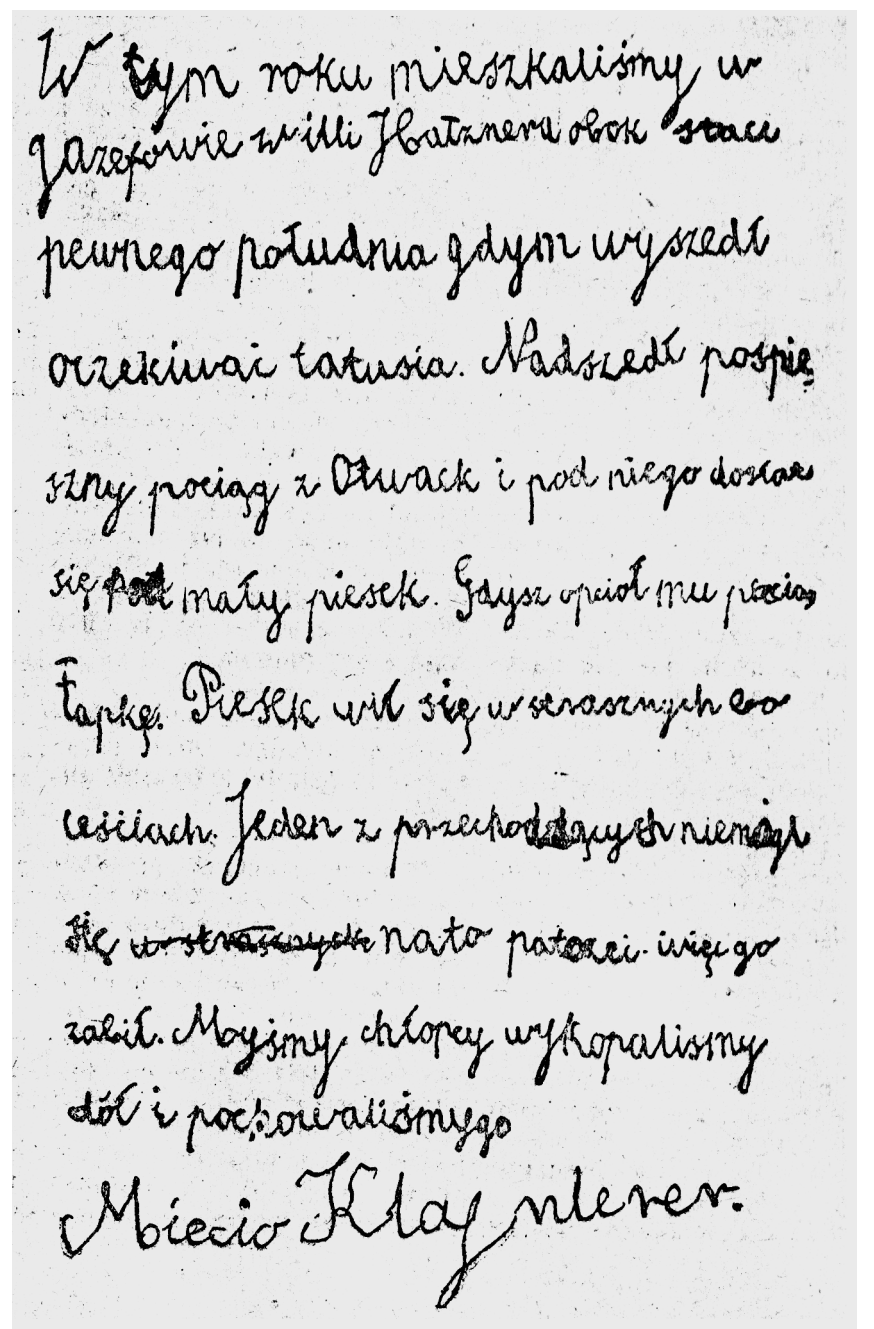 W tym roku mieszkaliśmy w
Józefowie w illi obok staci
pewnego południa gdym wyszedł
oczekiwać tatusia. Nadszedł pospie
szny pociąg z Otwack i pod niego dostał
się mały piesek. Gdysz opcioł mu pociąg
łapkę. Piesek wił się w strasznych bo
leściach. Jeden z przechodzących niemógł
się w strasznych nato patszeć. więc go
zabił. Myjśmy chłopcy wykopalismy
dół i pochowaliśmygo
Miecio